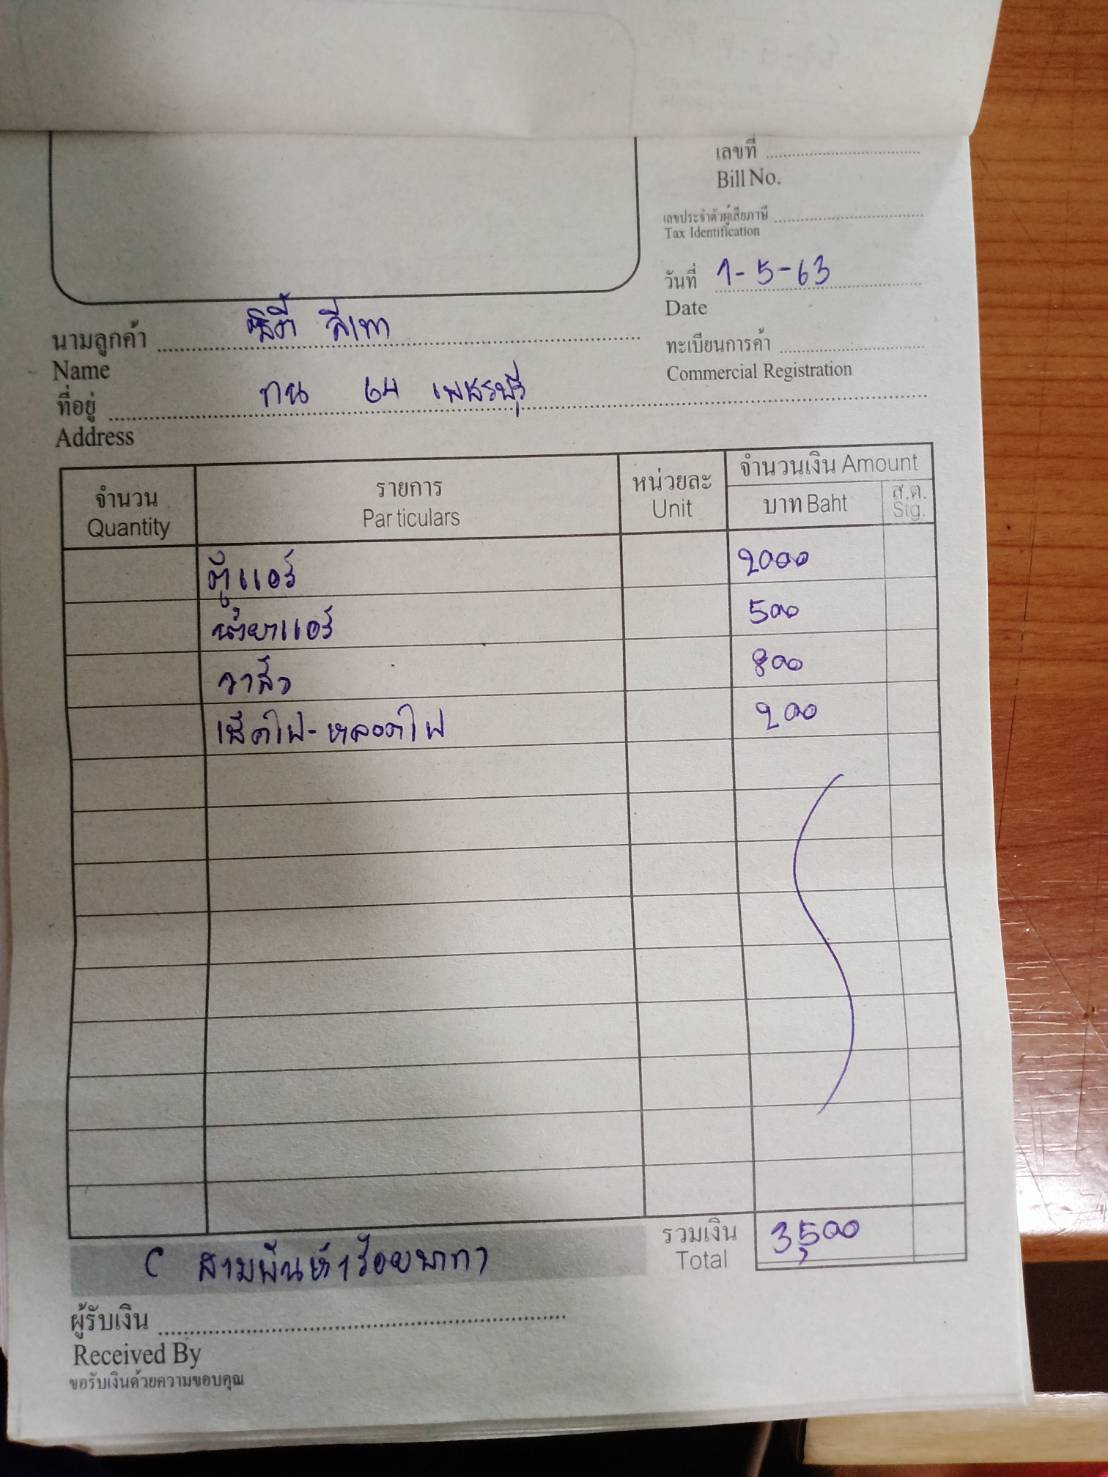 เลขที่
Bill No.
เลขประจำตัวผู้เสียภาษี
Tax Identification
วันที่ 1-5-63
Date
นามลูกค้า ซิตี้ สีเทา
Name
ทะเบียนการค้า
Commercial Registration
ที่อยู่ ทน 64 เพชรบุรี
Address
จำนวน รายการ หน่วยละ จำนวนเงิน Amount
Quantity Particulars Unit บาท Baht ส.ต. Stg.
ตู้แอร์ 2000
น้ำยาแอร์ 500
วาล์ว 800
เช็คไฟ-หลอดไฟ 200
รวมเงิน 3,500
Total
( สามพันห้าร้อยบาท)
ผู้รับเงิน
Received By
ขอรับเงินด้วยความขอบคุณ